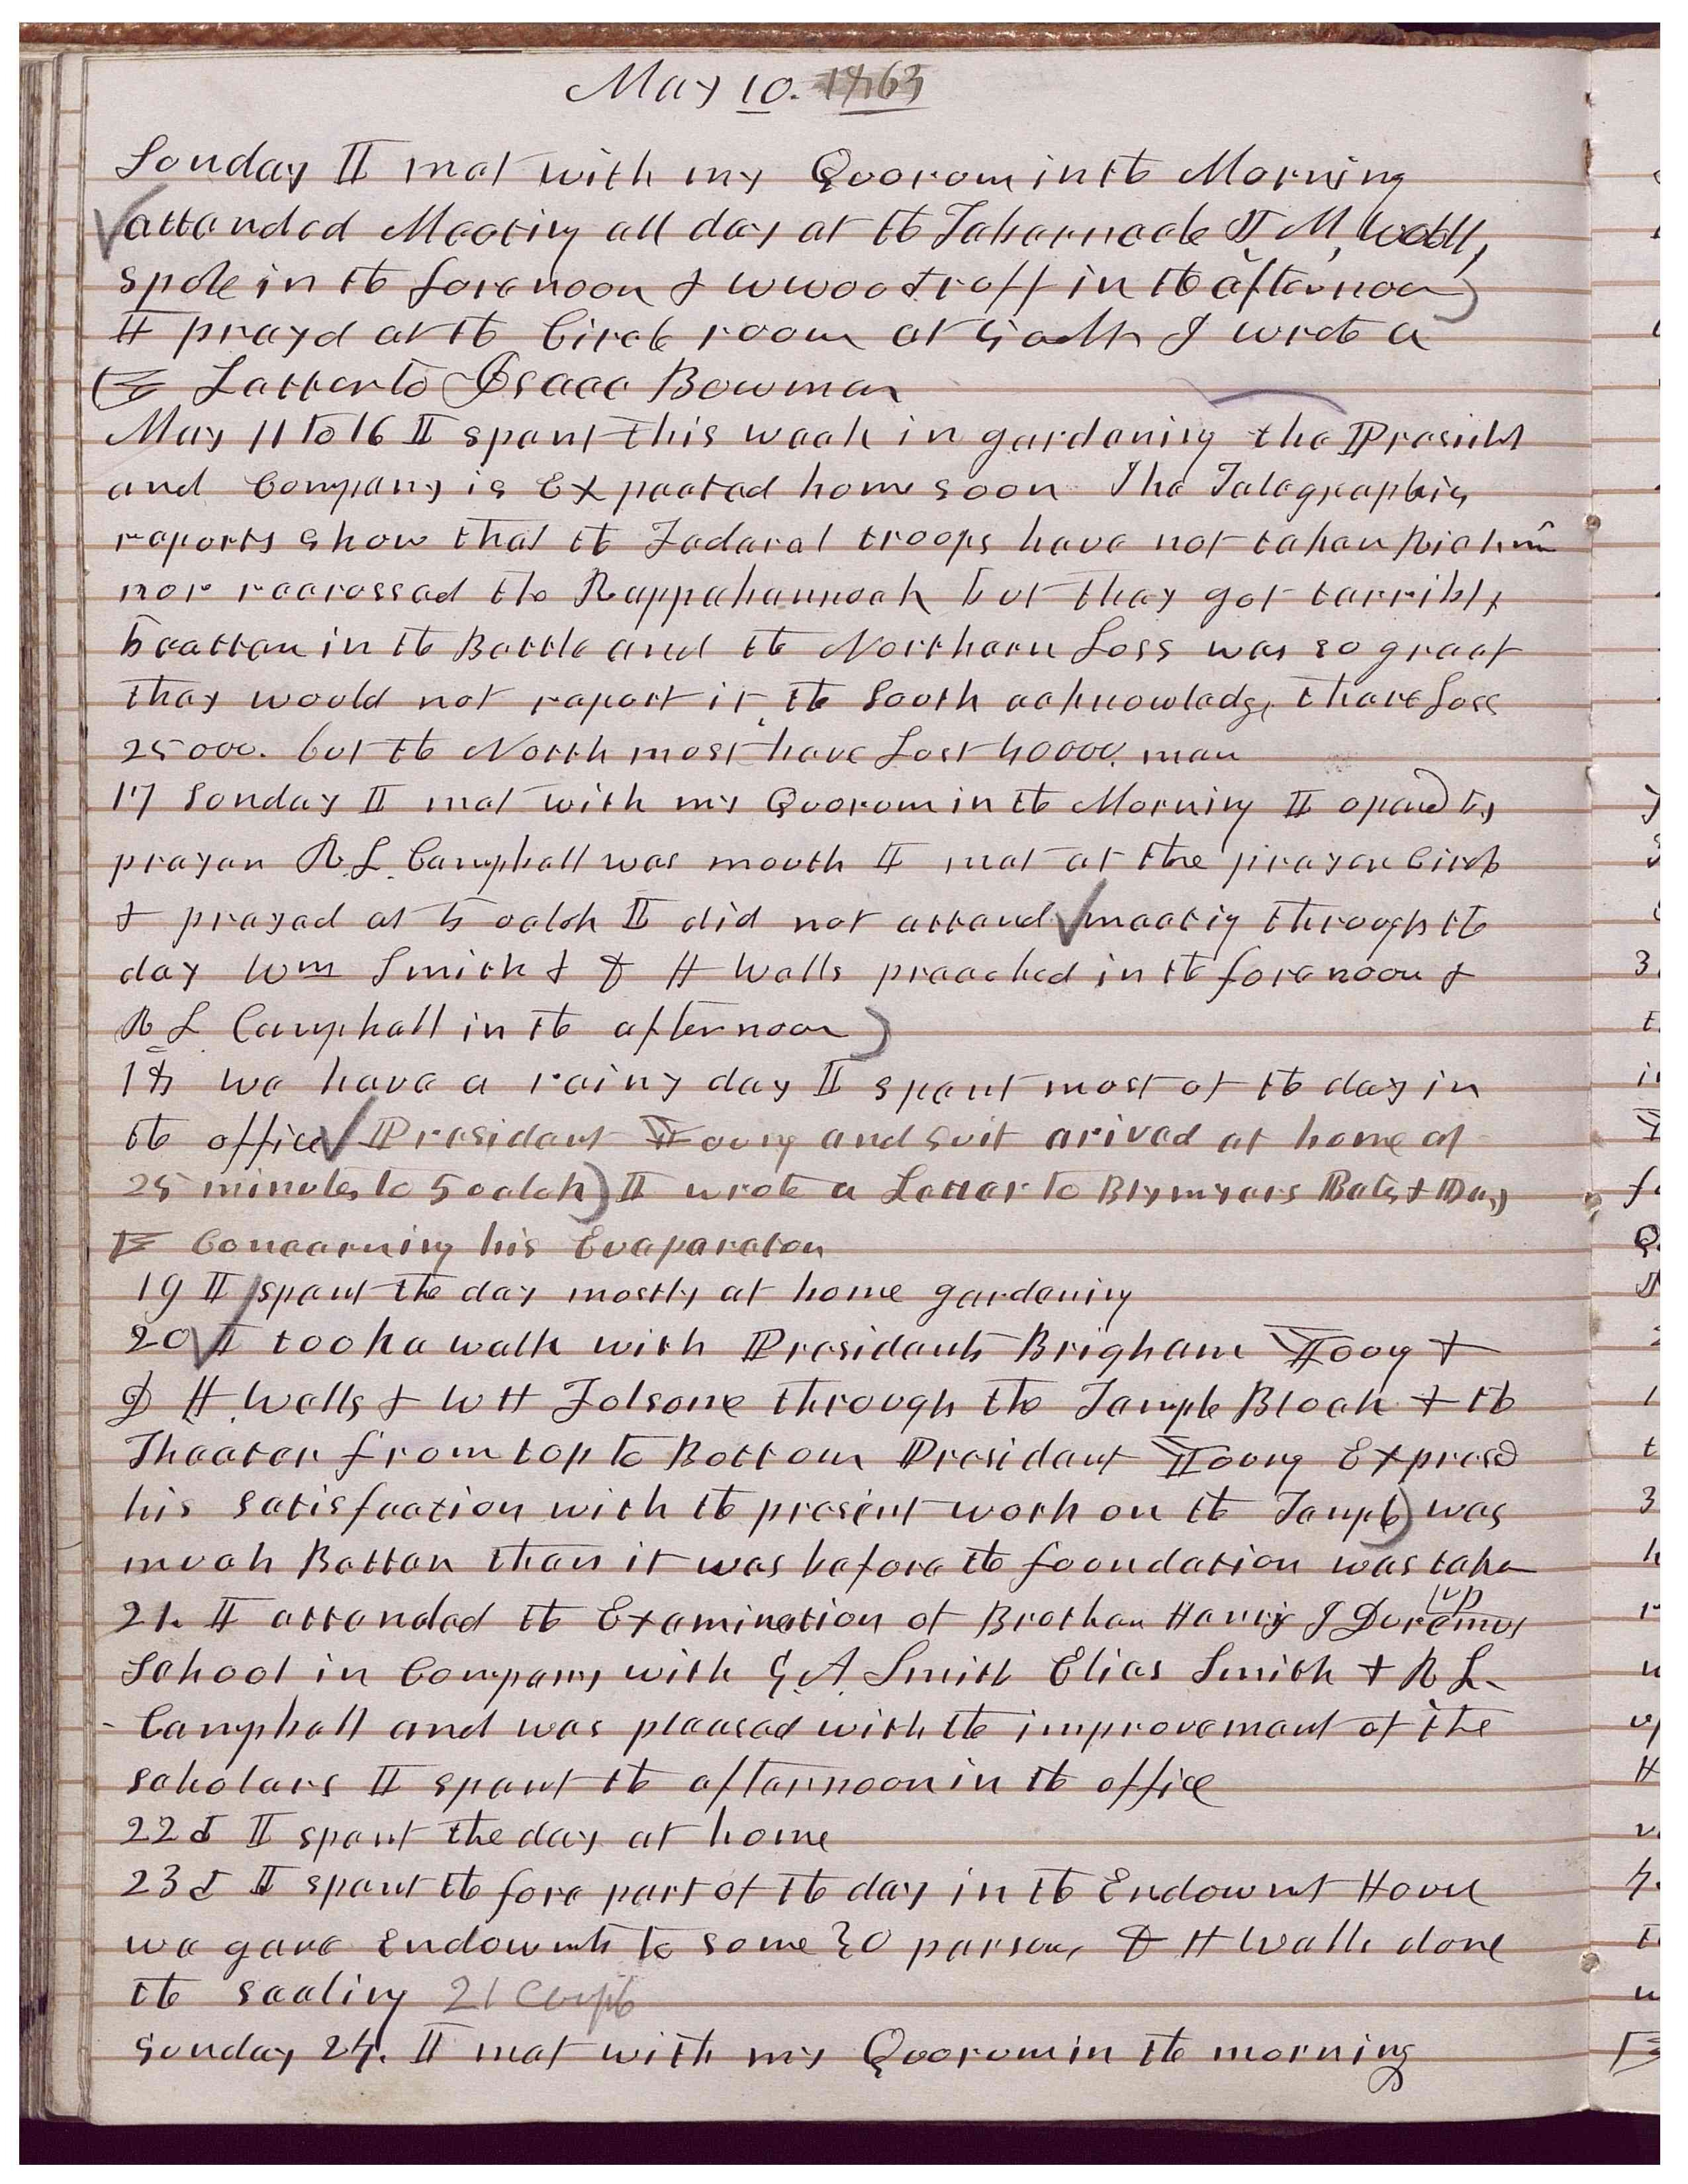 May 10. 1863
Sunday I met with my Quorum in the Morning
attended Meeting all day at the Tabernacle
spoke in the forenoon & W Woodruff in the afternoon
I prayed at the Circle room at I wrote a
Letter to Isaac Bowman
May 11 to 16 I spent this week in gardening the President
and Company is Expected home soon The Telegraphic
reports show that the Federal troops have not taken Richm
nor recrossed the Rappahannock but they got terribly
beatten in the Battle and the Northern Loss was so great
they would not report it, the South acknowledge there Loss
25000. but the North must have Lost 40000. men
17 Sunday I met with my Quorum in the Morning I opened by
prayer R. L. Campbell was mouth I met at the prayer Circle
& prayed at 5 oclok I did not attend meeting through the
day Wm Smith & D H Wells preached in the forenoon &
R L Campbell in the afternoon
18 we have a rainy day I spent most of the day in
the office President Young and suit arived at home at
25 minutes to 5 oclok I wrote a Letter to Blymyers Bates & Day
Concerning his Evaparator
19 I spent the day mostly at home gardening
20 I took a walk with Presidents Brigham Young &
D H. Wells & W H Folsome through the Temple Block & the
Theater from top to Bottom President Young Expresd
his satisfaction with the present work on the Temple was
much Better than it was before the foundation was taken
up
21. I attended the Examination of Brother Doremus
School in Company with G. A. Smith Elias Smith & R L.
Campbell and was pleased with the improvement of the
scholars I spent the afternoon in the office
22d I spent the day at home
23d I spent the fore part of the day in the Endowmt House
we gave Endowmts to some 30 persons D H Wells done
the sealing 21 Couple
Sunday 24. I met with my Quorum in the morning